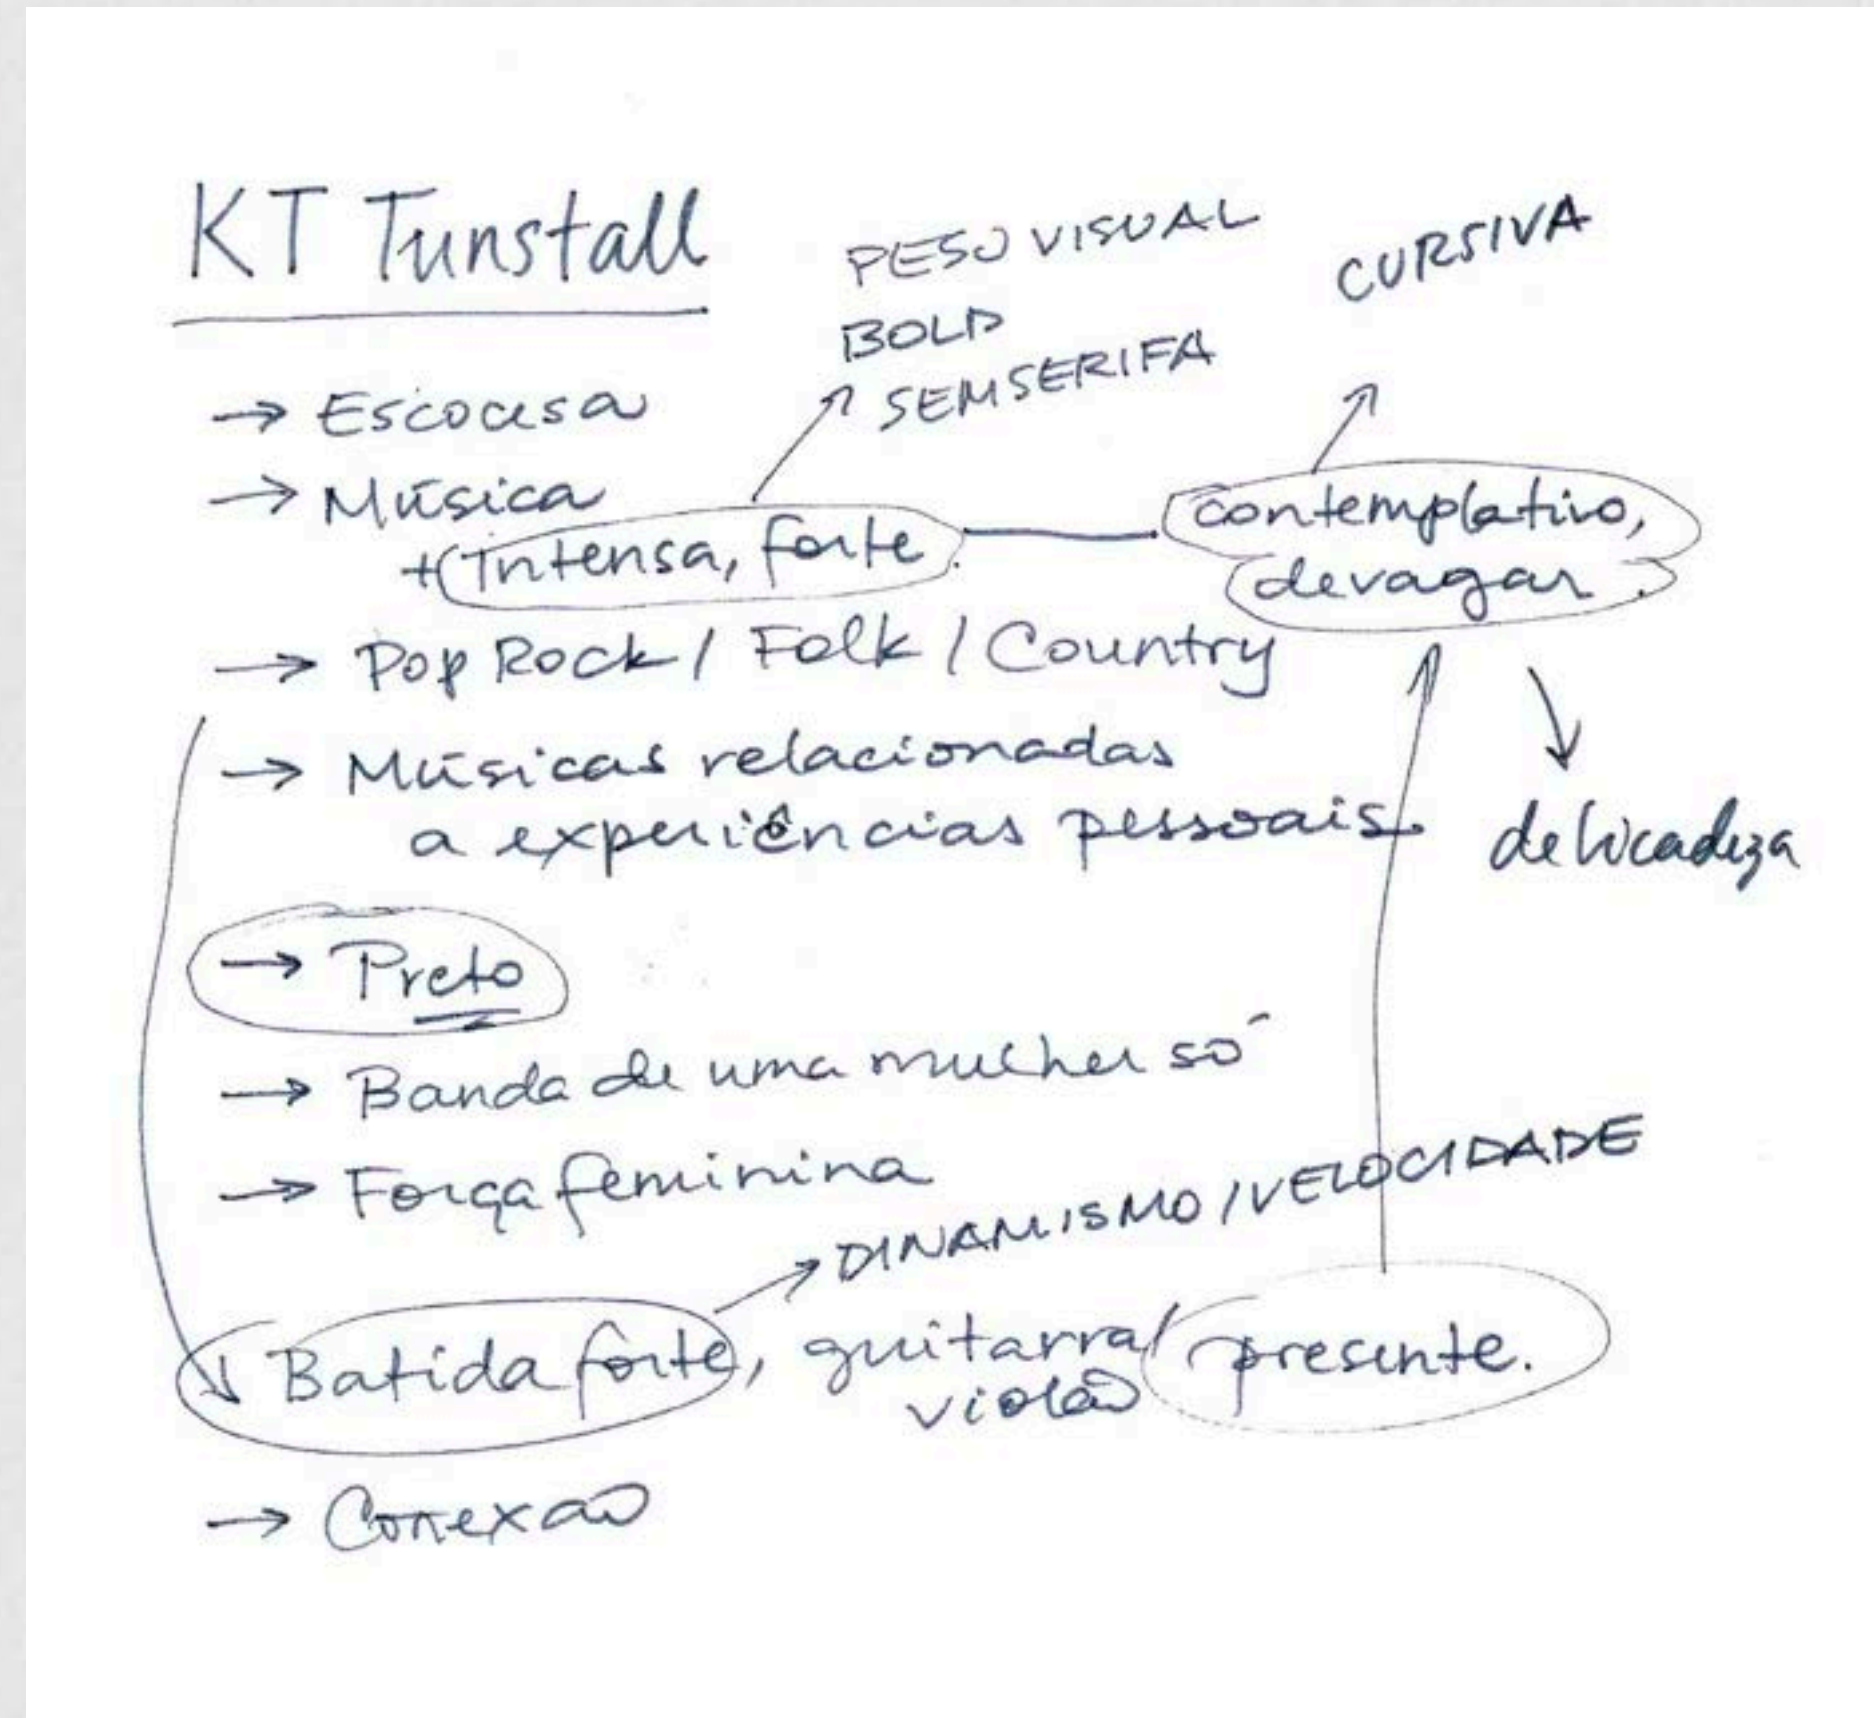 KT Tunstall
PESO VISUAL
BOLD
SEM SERIFA
CURSIVA
→ Escocesa
→ Música
+ Intensa, forte.
contemplativo,
devagar.
→ Pop Rock / Folk / Country
→ Músicas relacionadas
a experiências pessoais.
delicadeza
→ Preto
→ Banda de uma mulher só
→ Força feminina
→ DINAMISMO / VELOCIDADE
Batida forte, guitarra/
violão
presente.
→ Conexão